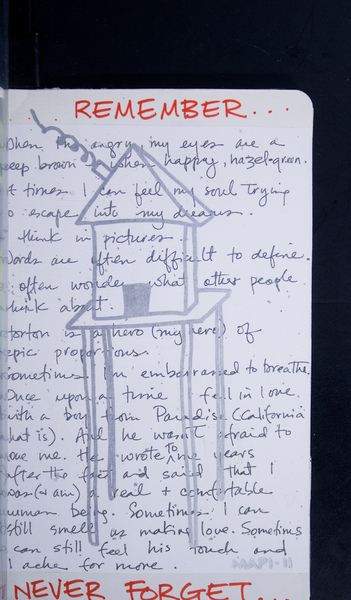 REMEMBER...
When I'm angry my eyes are a
deep brown when happy, hazel-green.
At times I can feel my soul trying
to escape into my dreams.
I think in pictures.
Words are often difficult to define.
I often wonder what other people
think about.
Horton is a hero (my hero) of
epic proportions.
Sometimes I'm embarrassed to breathe.
Once upon a time I fell in love
with a boy from Paradise (California
that is). And he wasn't afraid to
love me. He wrote to me years
after the fact and said that I
was (+ am) a real + comfortable
human being. Sometimes I can
still smell us making love. Sometimes
I can still feel his touch and
I ache for more.
MAPI-11
NEVER FORGET...